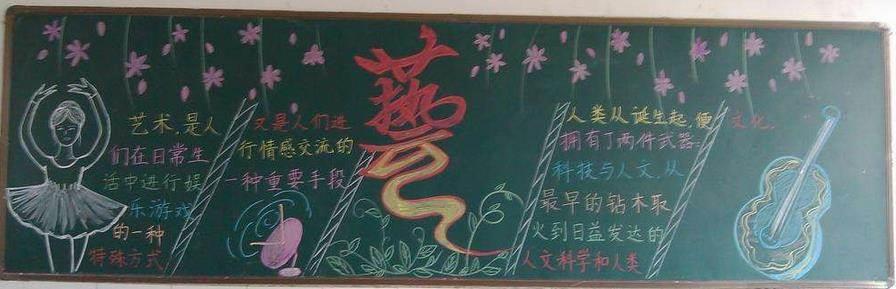 艺术,是人
们在日常生
活中进行娱
乐游戏
的一种
特殊方式
又是人们进
行情感交流的
一种重要手段
藝
人类从诞生起,便
拥有了两件武器:
科技与人文,从
最早的钻木取
火到日益发达的
人文科学和人类
文化.